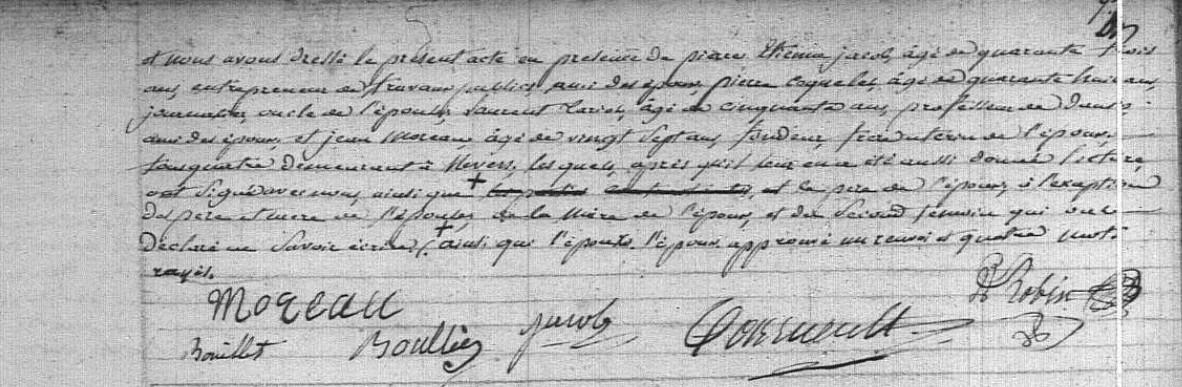 et nous avons dressé le présent acte en présence de pierre Etienne jacob, âgé de quarante trois
ans, entrepreneur de travaux publics, ami des époux, pierre coquelet, âgé de quarante huit ans,
journalier, oncle de l'épouse, laurent, âgé de cinquante ans, professeur de danse,
ami des époux, et jean Moreau, âgé de vingt Sept ans, fondeur, frère utérin de l'époux,
tous quatre demeurant à Nevers, lesquels, après qu'il leur en a été aussi donné lecture,
ont Signé avec nous, ainsi que + les parties contractantes, et le père de l'époux, à l'exception
des père et mère de l'épouse, de la Mère de l'époux, et du Second témoin qui ont
Déclaré ne Savoir écrire, (+ ainsi que l'épouse. l'époux approuvé un renvoi et quatre mots
rayés.
Moreau
Bouillet Boullier jacob
Robin